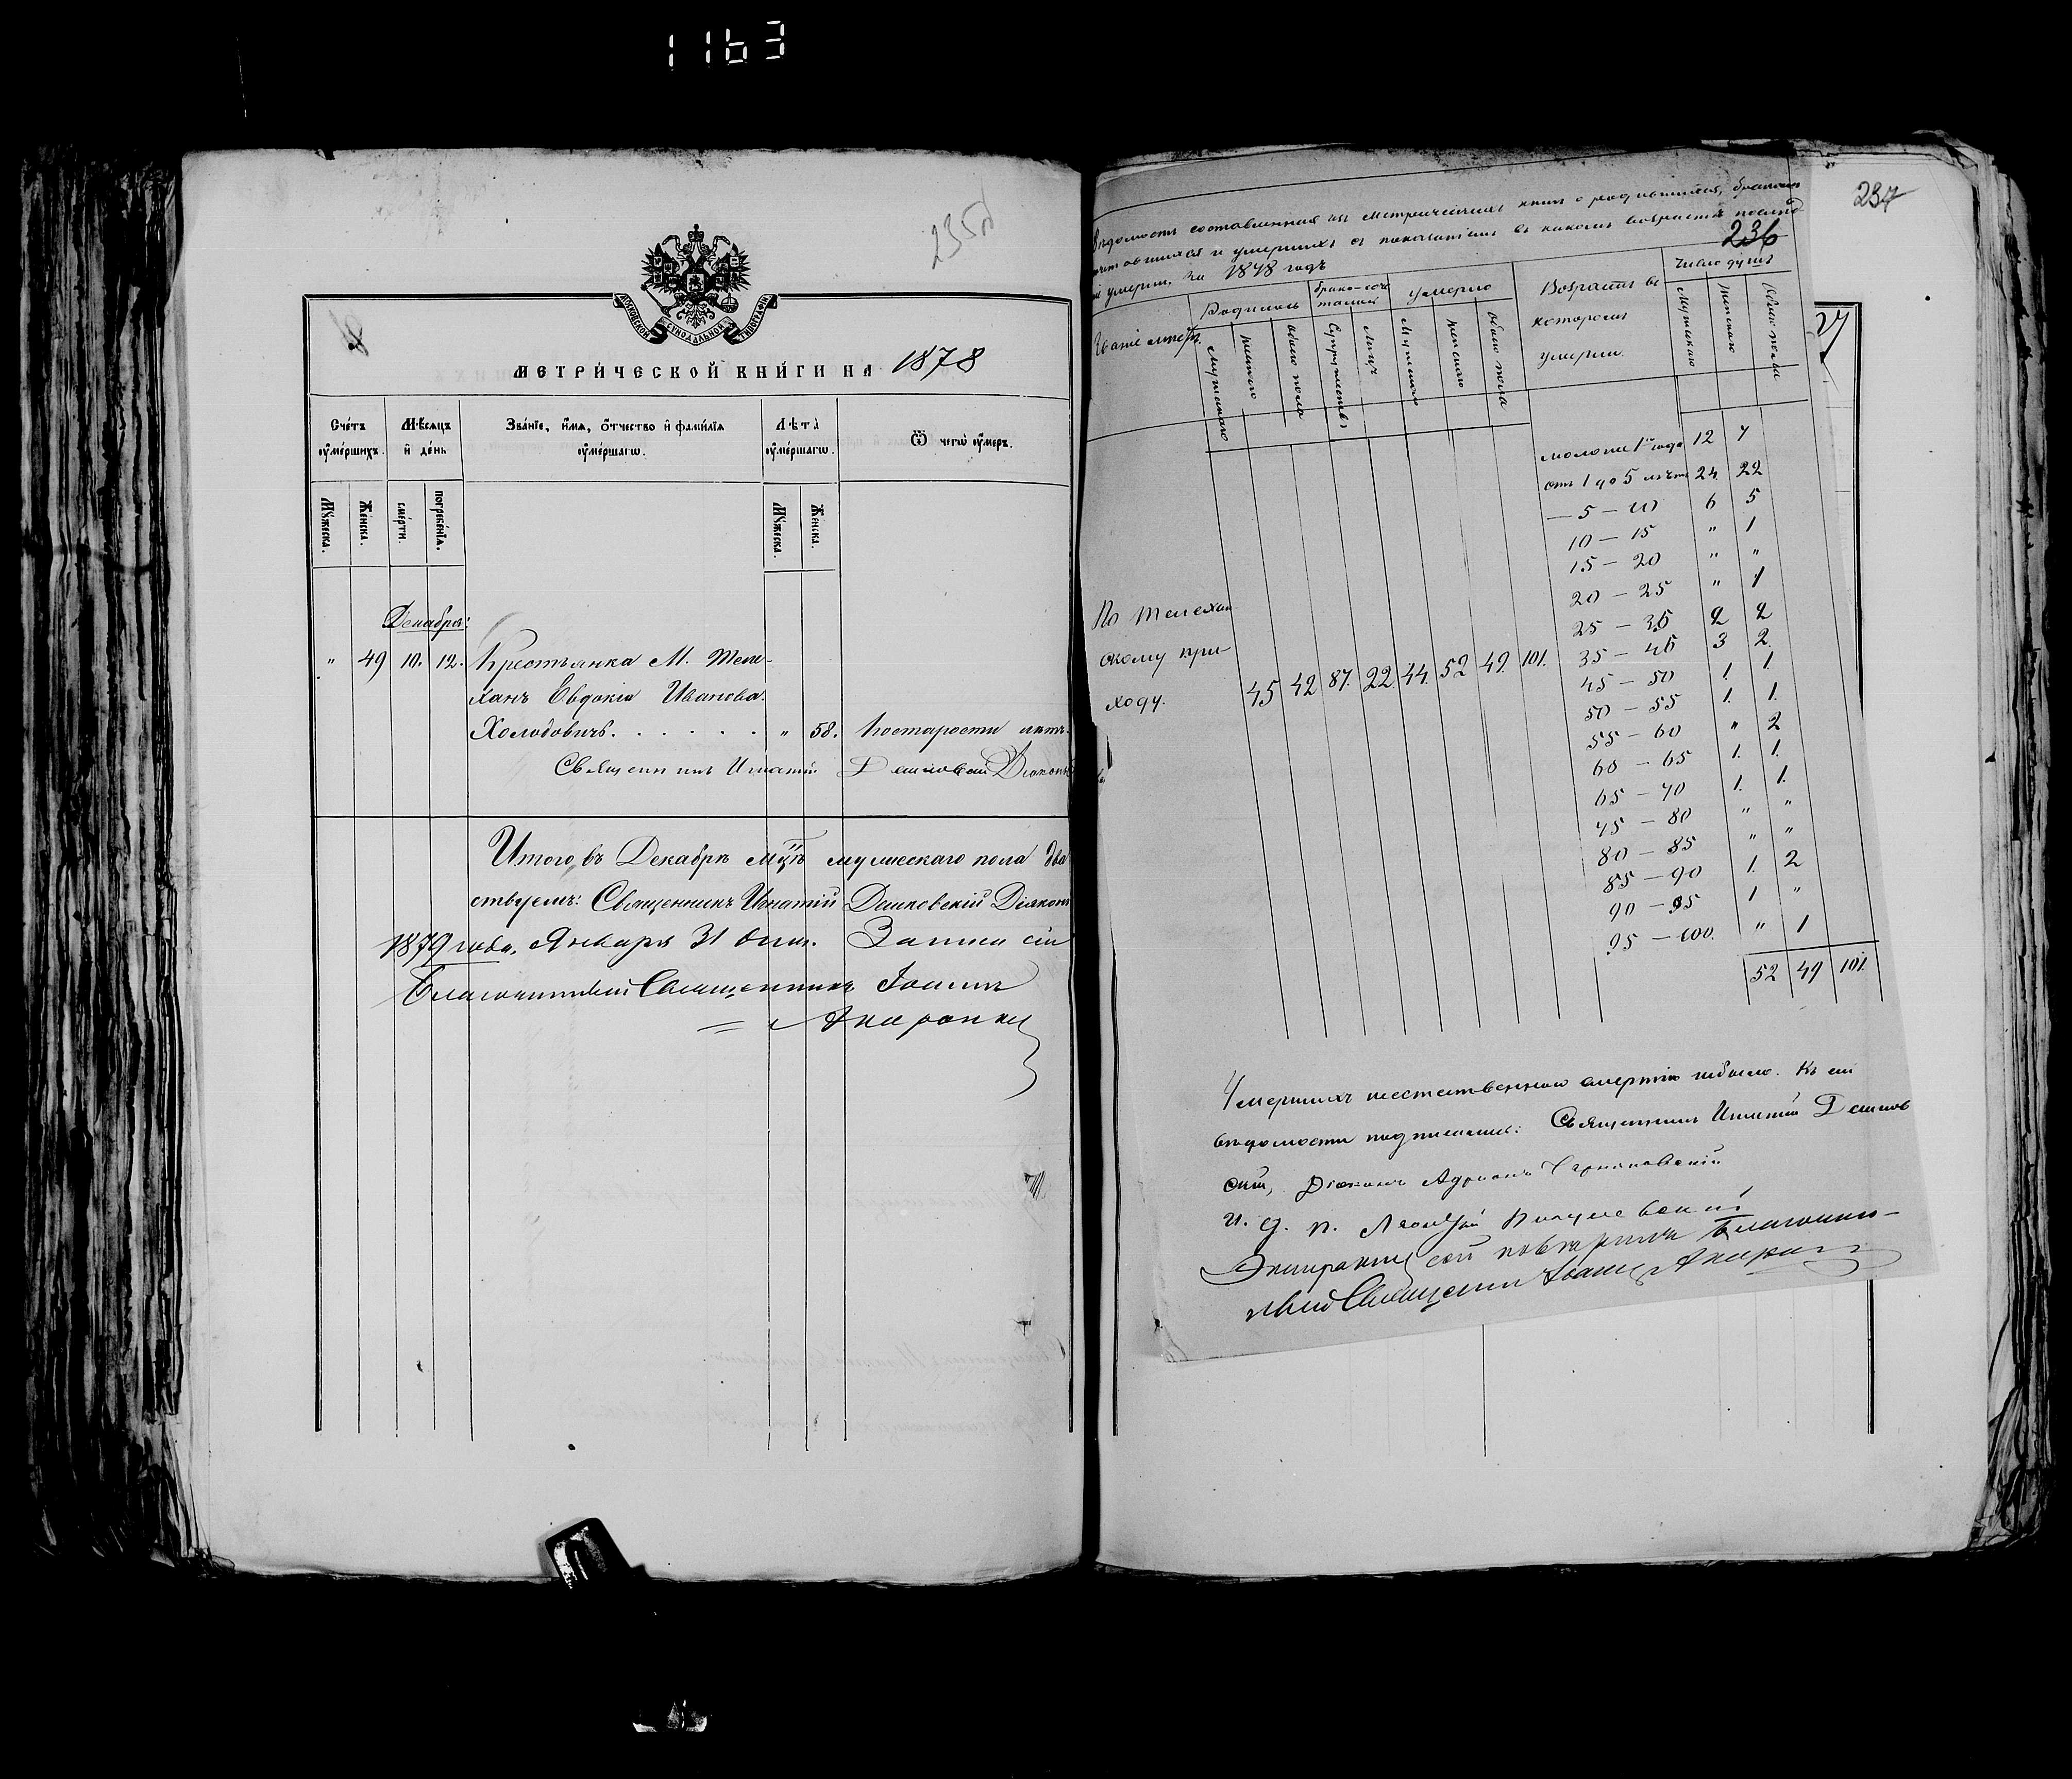 1163
235об
МОСКОВСКОЙ СѴНОДАЛЬНОЙ ТИПОГРАФІИ
МЕТРИ́ЧЕСКОЙ КНИ́ГИ НА 1878
Сче́тъ оу҆ме́ршихъ.
Мѣ́сяцъ и҆ де́нь
Зва́нїе, и҆́мя, ѻ҆́тчество и҆ фами́лїя оу҆ме́ршагѡ.
Лѣ́та̀ оу҆ме́ршагѡ.
Ѿ чегѡ̀ оу҆́меръ.
Мꙋ́жеска.
Же́нска.
сме́рти.
погребе́нїя.
Мꙋ́жеска.
Же́нска.
Декабря:
" 49 10. 12. Крестьянка М. Теле-
ханъ Евдокія Иванова
Холодовичъ. . . . . . " 58. Ко старости лѣтъ.
Священникъ Игнатій Дашковскій Діаконъ
Итого въ Декабрѣ мцѣ мужескаго пола два
ствуемъ: Священникъ Игнатій Дашковскій Діаконъ
1879 года, Января 31 дня. Записи сіи
Благочинный Священникъ Іоаннъ
237
Вѣдомость составленная изъ метрическихъ книгъ о родившихся, бракомъ
сочетавшихся и умершихъ съ показаніемъ въ какомъ возрастѣ послѣд
236
умерли, за 1878 годъ
Званіе
Родилось
брако-соче таній
умерло
Возрастъ въ которомъ умерли.
Число душъ
мужескаго
женскаго
обоего пола
Супружествъ
Лицъ
Мужескаго
женскаго
обоего пола
Мужескаго
Женскаго
Обоего пола
моложе 1 года 12 7
отъ 1 до 5 лѣтъ 24 22
— 5 — 10 6 5
10 — 15 " 1
15 — 20 " "
20 — 25 " 1
25 — 35 2 2
35 — 45 3 2.
45 — 50 1. 1
50 — 55 1. 1.
55 — 60 " 2
60 — 65 1. 1.
65 — 70 1. 1.
75 — 80 " "
80 — 85 " "
85 — 90 1. 2
90 — 95 1 "
95 — 100. " 1
52 49 101.
По Телехан
скому при-
ходу. 45 42 87. 22 44. 52 49. 101.
Умершихъ неестественною смертію небыло. Къ сей
вѣдомости подписались: Священникъ Игнатій Дашков
скій, Діаконъ Адріанъ
и. д. п.
Священникъ Іоаннъ